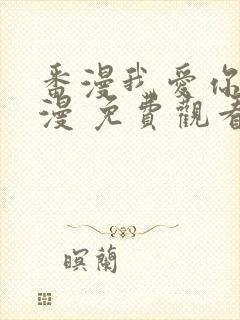 番漫我愛你
漫 免費觀看
暝蘭